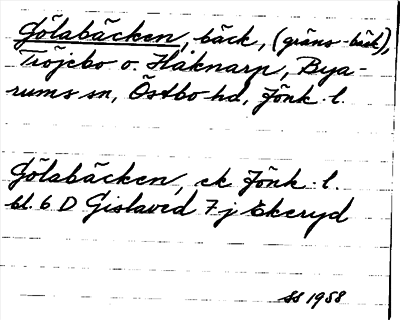 Gölabäcken, bäck, (gräns-bäck),
Tröjebo o. Håknarp, Bya-
rums sn, Östbo hd, Jönk. l.
Gölabäcken ek Jönk. l.
bl. 6 D Gislaved 7 j Ekeryd
SS 1958